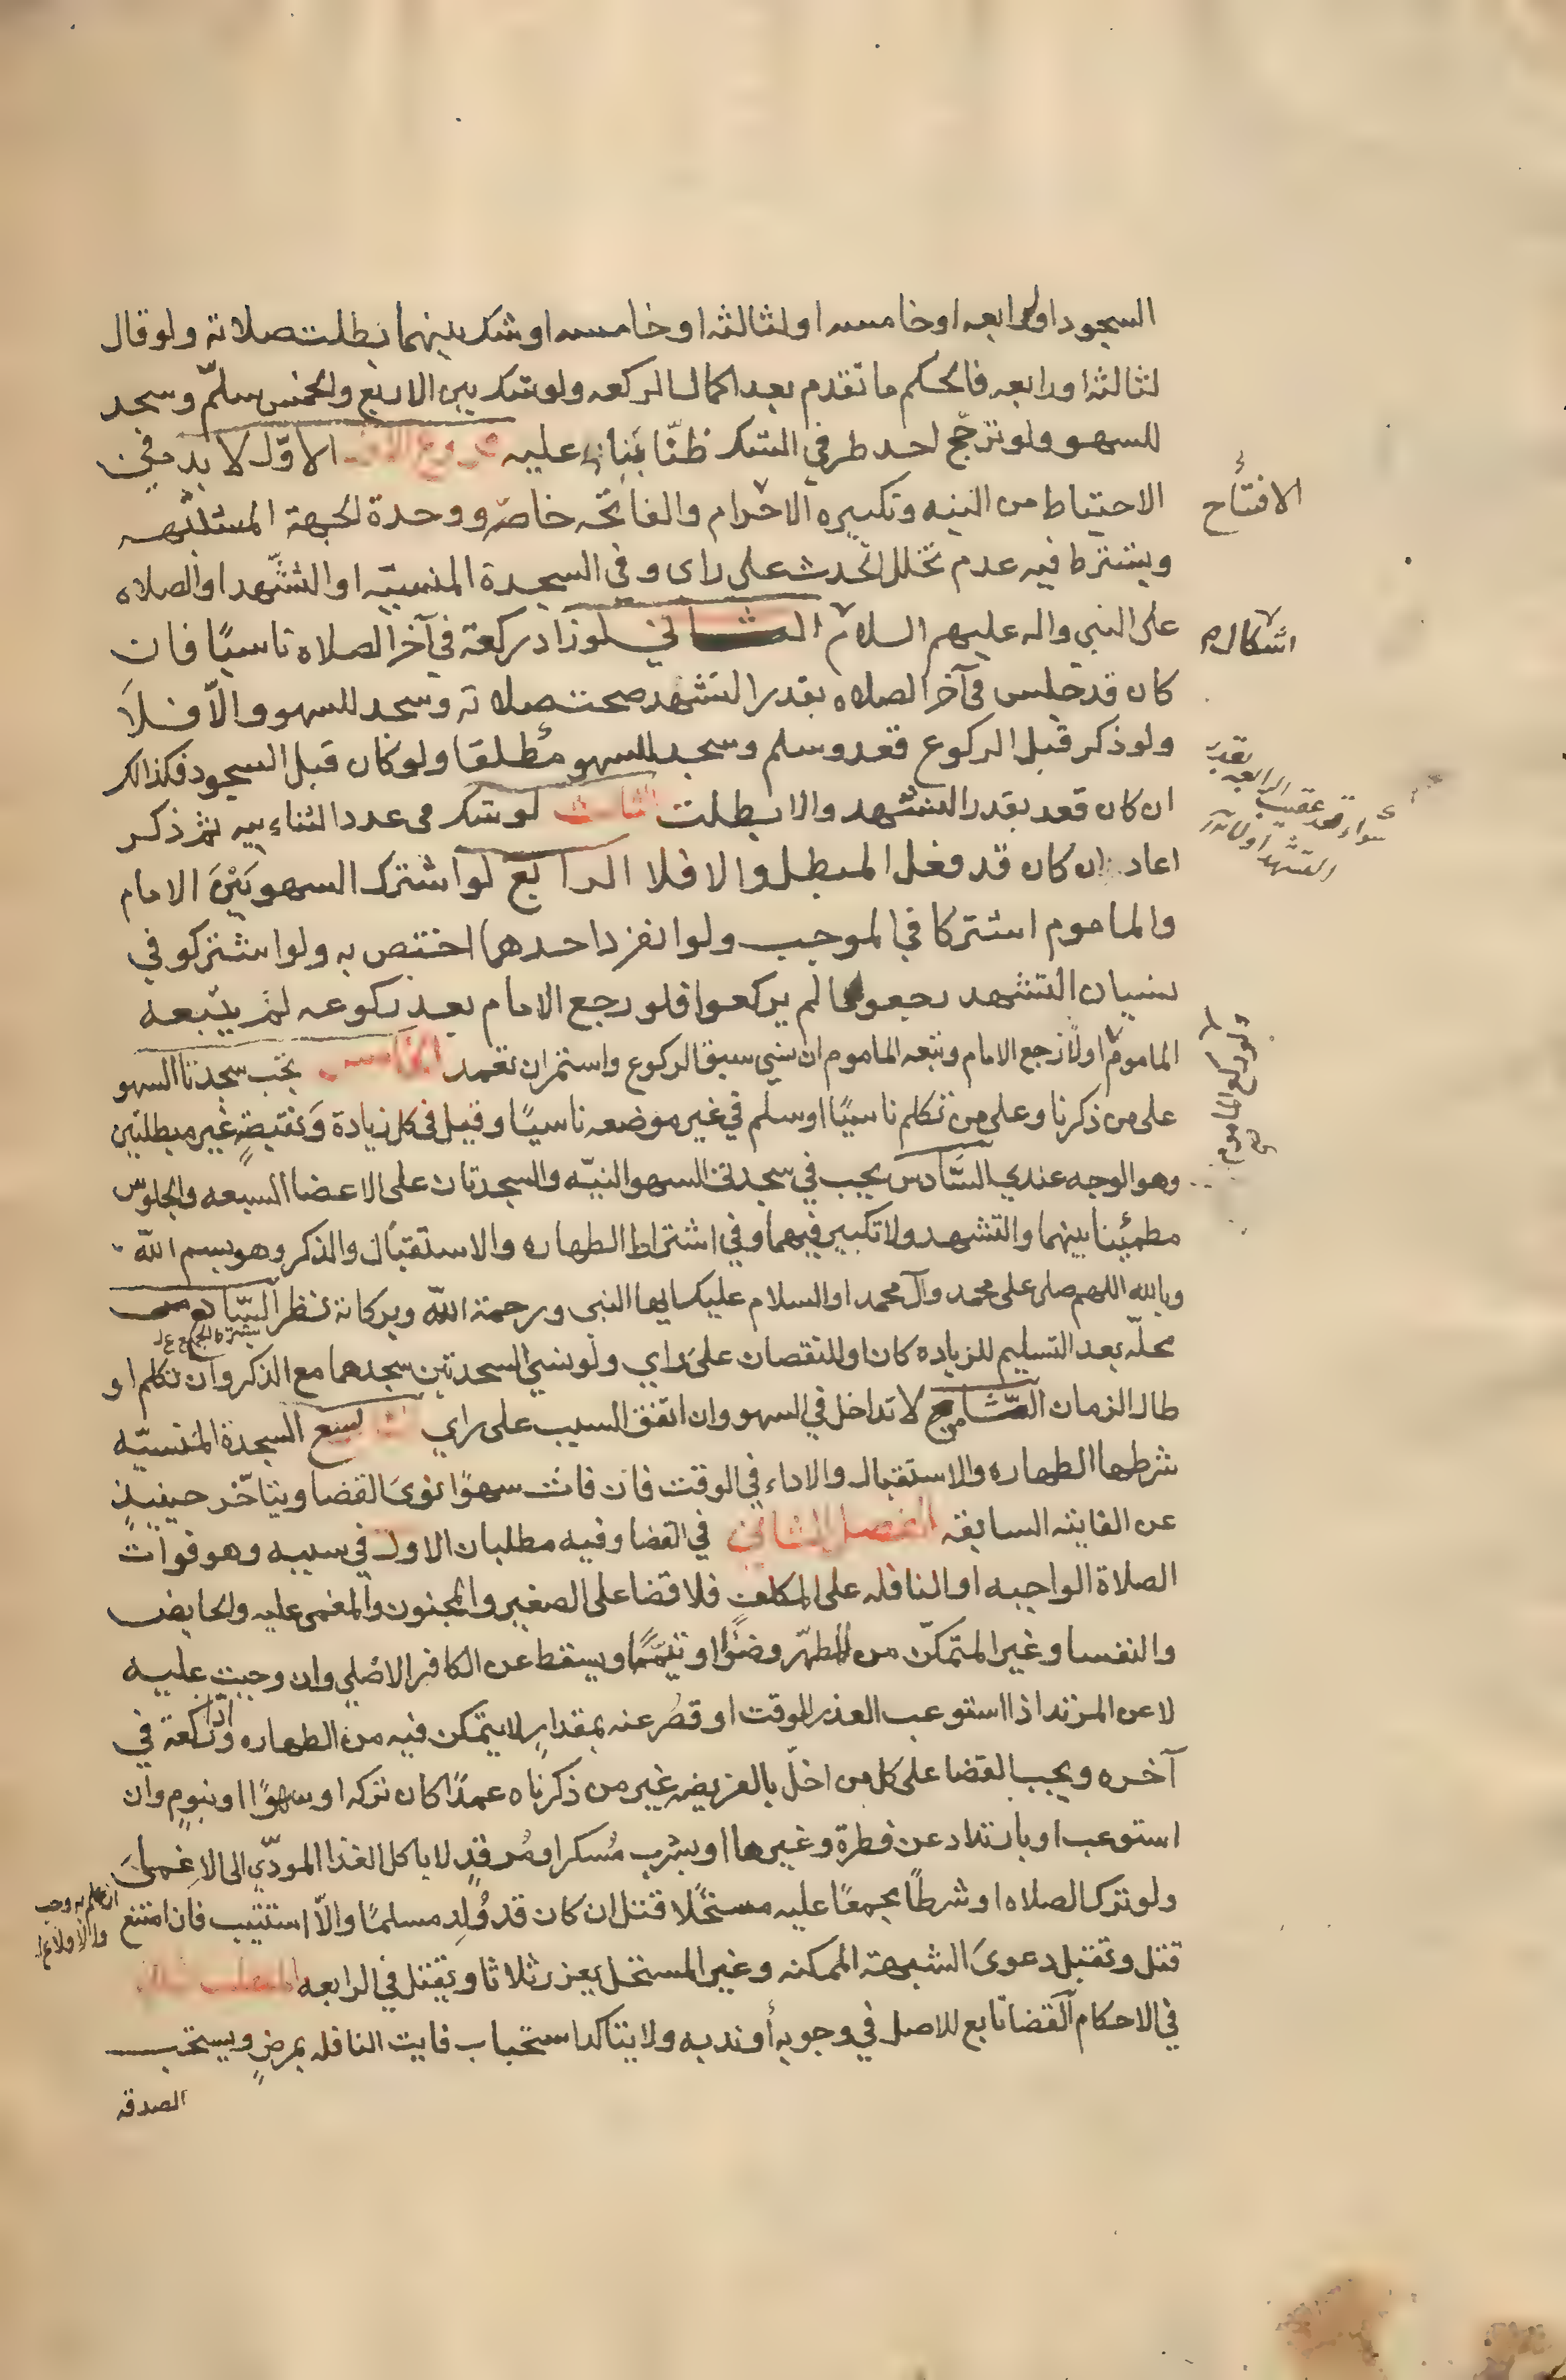 السجود او لرابعه او خامسه او لثالثه او خامسه او شك بينهما بطلت صلاته ولو قال
لثالثه او رابعه فالحكم ما تقدم بعد اكمال الركعه ولو شك بين الاربع والخمس سلّم وسجد
للسهو ولو ترجّح احد طرفي الشك ظنّا بنا عليه فروع الاول لا بد في
الاحتياط من النيه وتكبيره الاحرام والفاتحه خاصّه ووحدة الجهة المشتبهه
ويشترط فيه عدم تخلل الحدث على راى وفي السجدة المنسيّه او التشّهد او الصلاه
على النبي واله عليهم السلام الثاني لو زاد ركعة في آخر الصلاه ناسيًا فان
كان قد جلس في آخر الصلاه بقدر التشهد صحت صلاته وسجد للسهو والّا فلا
ولو ذكر قبل الركوع قعد وسلم وسجد للسهو مطلقا ولو كان قبل السجود فكذالك
ان كان قعد بقدر التشهد والا بطلت الثالث لو شك في عدد الثناءييه ثم ذكر
اعاد ان كان قد فعل المبطل والا فلا الرابع لو اشترك السهو بَيْنَ الامام
والماموم اشتركا في الموجب ولو انفرد احدهما اختص به ولو اشتركو في
نسيان التشهد رجعوا ما لم يركعوا فلو رجع الامام بعد ركوعه لم يتبعه
الماموم اولًا رجع الامام وتبعه الماموم ان نسي سبق الركوع واستمر ان تعمد الخامس تجب سجدتا السهو
على من ذكرنا وعلى من تكلم ناسيًا او سلم في غير موضعه ناسيًا وقيل في كل زيادة ونقيصةٍ غير مبطلتين
وهو الوجه عندي السَّادس يجب في سجدتي السهو النيّه والسجدتان على الاعضا السبعه والجلوس
مطمئنا بينهما والتشهد ولا تكبير فيهما وفي اشتراط الطهاره والاستقبال والذكر وهو بسم الله
وبالله اللهم صل على محمد وآل محمد او السلام عليك ايها النبى ورحمة الله وبركاته نظر السّابع
محلّه بعد التسليم للزياده كان او للنقصان على راي ولو نسي السجدتين سجدهما مع الذكر وان تكلم او
طال الزمان الثامن لا تداخل في السهو وان اتفق السبب على راي التاسع السجدة المنسيّه
شرطها الطهاره والاستقبال والاداء في الوقت فان فاتت سهوًا نوى القضا ويتاخّر حينيذٍ
عن الفايته السابقه الفصل الثاني في القضا وفيه مطلبان الاول في سببه وهو فوات
الصلاة الواجبه او النافله على المكلف فلا قضا على الصغير والمجنون والمغمى عليه والحايض
والنفسا وغير المتمكّن من المطهّر وضوًا وتيمّمًا ويسقط عن الكافر الاصلي وان وجبت عليه
لا عن المرتد اذا استوعب العذر الوقت او قصُر عنه بمقدارٍ لا يتمكن فيه من الطهاره واداء ركعة في
آخره ويجب القضا على كل من اخلّ بالفريضه غير من ذكرناه عمدًا كان تركه او سهوًا او بنومٍ وان
استوعب او بارتداد عن فطرة وغيرها او بشرب مُسكر او مُرقدٍ لا باكل الغذا المودّي الى الاغما
ولو ترك الصلاه او شرطًا مجمعًا عليه مستحلًا قتل ان كان قد وُلِد مسلمًا والّا استتيب فان امتنع
قتل وتقبل دعوى الشبهة الممكنه وغير المستحل يعزر ثلاثا ويقتل في الرابعه المطلب الثاني
في الاحكام القضا تابع للاصل في وجوبه أو ندبه ولا يتاكد استحباب فايت النافله بمرضٍ ويستحب
الصدقه
الافتتاح
اشكال
بقدر
سواء قعد عقيب الرابعه
التشهد او لا
ولو ركع الماموم
يشترط
ان علم به وجب
والا فلا